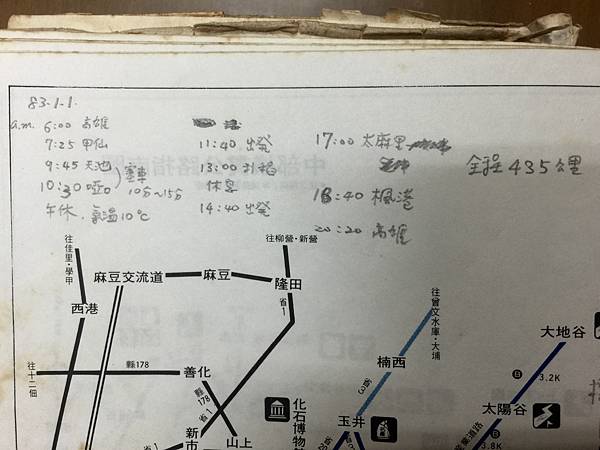 83.1.1.
a.m. 6:00 高雄
7:25 甲仙
9:45 天池
10:30 啞口
塞車 10分~15分
午休, 氣溫10℃
11:40 出發
13:00 利稻
休息
14:40 出發
17:00 太麻里
18:40 楓港
20:20 高雄
全程 435公里
往佳里・學甲
往柳營・新營
麻豆交流道
麻豆
隆田
西港
省1
往曾文水庫・大埔
大地谷
往十二佃
縣178
善化
楠西
3.2K
縣178
省1
化石博物館
省3
太陽谷
玉井
新市
山上
3.8K
產業道路